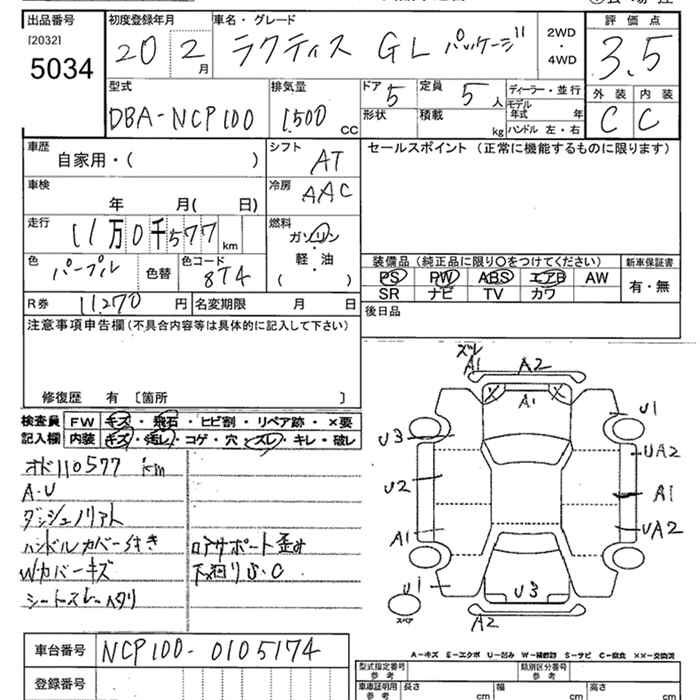 出品番号 初度登録年月 車名・グレード 評価点
[2032] 5034
20 2月 ラクティス GL パッケージ 2WD・4WD 3.5
型式 排気量 ドア 5 定員 5人 ディーラー・並行
DBA-NCP100 1,500 cc 形状 積載 kg モデル年式 年 ハンドル 左・右
外装 内装
C C
車歴 自家用・( ) シフト AT
セールスポイント (正常に機能するものに限ります)
車検 年 月( 日) 冷房 AAC
走行 11万0千577 km 燃料 ガソリン・軽・油 ( )
色 パープル 色替 色コード 8T4
装備品 (純正品に限り○をつけてください) 新車保証書
PS PW ABS エアB AW 有・無
SR ナビ TV カワ
R券 11,270 円 名変期限 月 日
後日品
注意事項申告欄(不具合内容等は具体的に記入して下さい)
修復歴 有 [箇所 ]
検査員 FW キズ・飛石・ヒビ割・リペア跡・×要
記入欄 内装 キズ・汚レ・コゲ・穴・スレ・キレ・破レ
オド110577km
A・U
ダッシュノリアト
ハンドルカバー付き
Wカバーキズ
シートスレ・ヘタリ
ロアサポート歪み
下廻りS・C
ズレ
A1 A2
A1
U1
U3
UA2
U2
A1
A1
UA2
U1
U3
スペア
A2
A-キズ E-エクボ U-凹み W-補修跡 S-サビ C-腐食 ××-交換済
車台番号 NCP100-0105174
登録番号
型式指定番号 参考 類別区分番号 参考
車庫証明用 参考 長さ cm 幅 cm 高さ cm